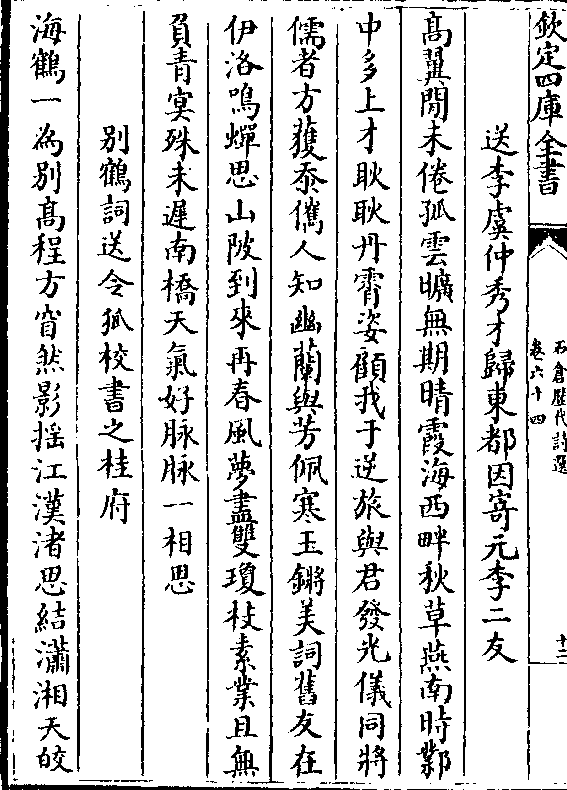 欽定四庫全書
石倉歷代詩選
卷六十四
十二
送李虞仲秀才歸東都因寄元李二友
髙翼閒未倦孤雲曠無期晴霞海西畔秋草燕南時鄴
中多上才耿耿丹霄姿顧我于逆旅與君發光儀同將
儒者方獲忝儁人知幽蘭與芳佩寒玉鏘美詞舊友在
伊洛鳴蟬思山陂到來再春風夢盡雙瓊枝素業且無
負青㝠殊未遲南橋天氣好脉脉一相思
别鶴詞送令狐校書之桂府
海鶴一為别髙程方窅然影摇江漢渚思結瀟湘天皎